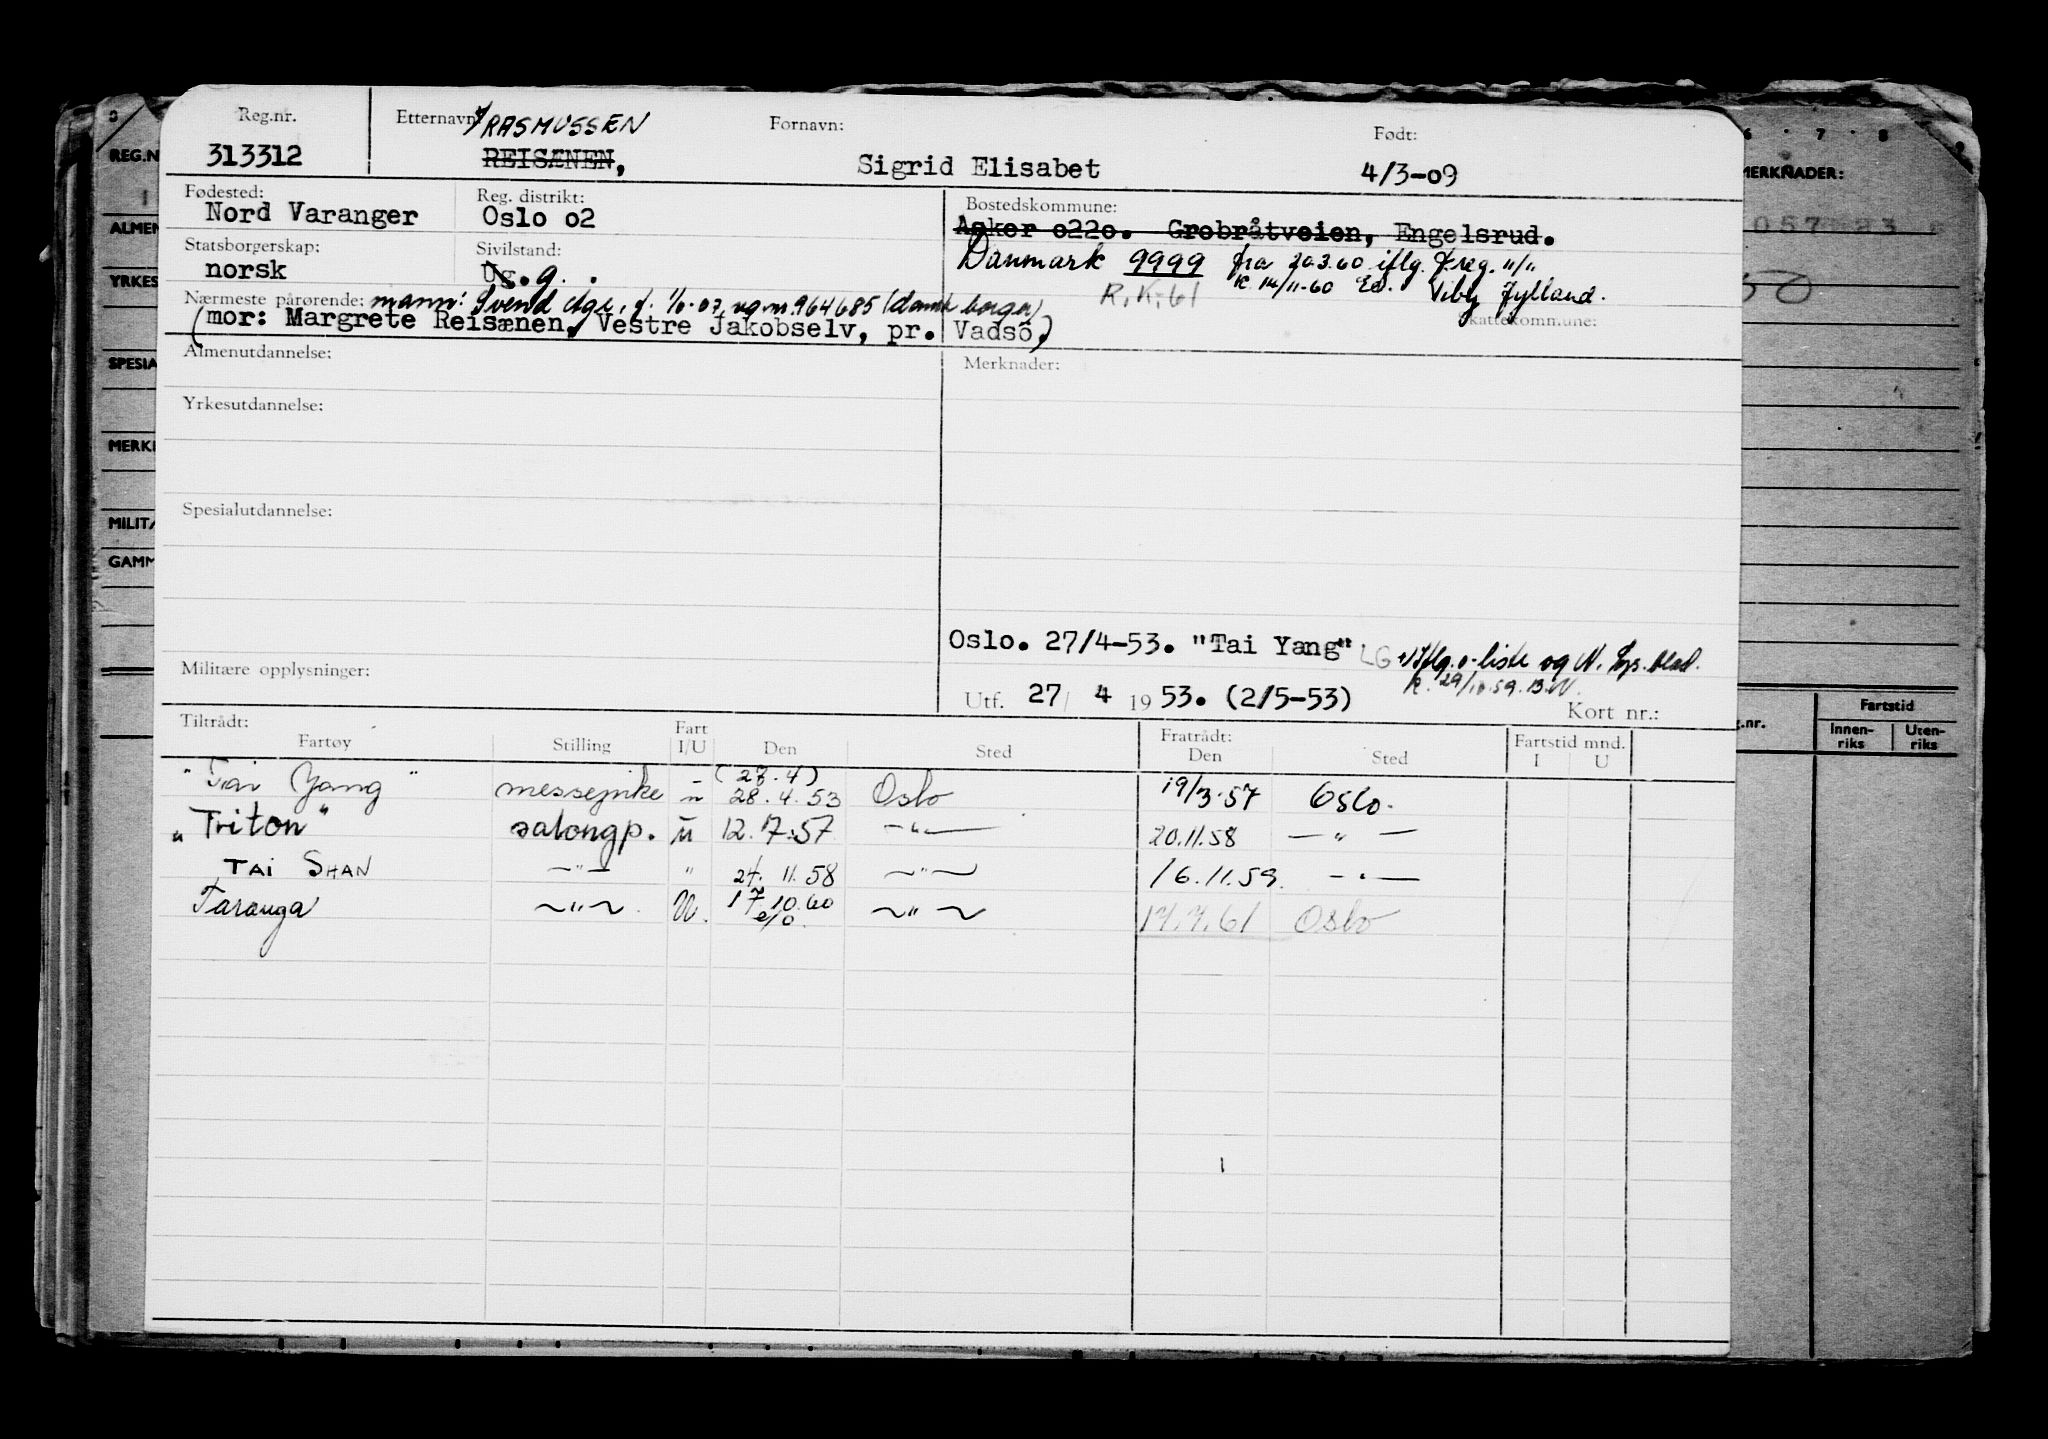 Reg.nr. Etternavn: Fornavn: Født:
RASMUSSEN
313312 REISÆNEN, Sigrid Elisabet 4/3-09
Fødested: Reg. distrikt: Bostedskommune:
Nord Varanger Oslo 02 Asker 0220. Grobråtveien, Engelsrud.
Statsborgerskap: Sivilstand: Danmark 9999 fra 20.3.60 iflg. "/"
norsk Ug. g. K. 14/11-60 Viby Jylland.
R.K.61
Nærmeste pårørende: mann: Svend Åge, f. (dansk borger)
(mor: Margrete Reisænen, Vestre Jakobselv, pr. Vadsö) Skattekommune:
Almenutdannelse: Merknader:
Yrkesutdannelse:
Spesialutdannelse:
Oslo. 27/4-53. "Tai Yang" LG Iflg. o-liste og N.
Militære opplysninger:
Utf. 27/ 4 1953. (2/5-53) Kort nr.:
Tiltrådt: Fratrådt:
Fartøy Stilling Fart I/U Den Sted Den Sted Fartstid mnd. I U
(27.4)
"Tai Yang" messepike u 28.4.53 Oslo 19/3-57 Oslo.
"Triton" salongp. u 12.7.57 -"- 20.11.58 -"-
TAI SHAN -"- " 24.11.58 -"- 16.11.59. -"-
Taranga -"- U. 17.10.60 -"- 17.7.61 Oslo
e/o.
REG.N
ALMEN
YRKES
SPESIA
MERK
MILIT
GAMM
6 7 8
MERKNADER:
g.nr. Fartstid
Innen-riks Uten-riks